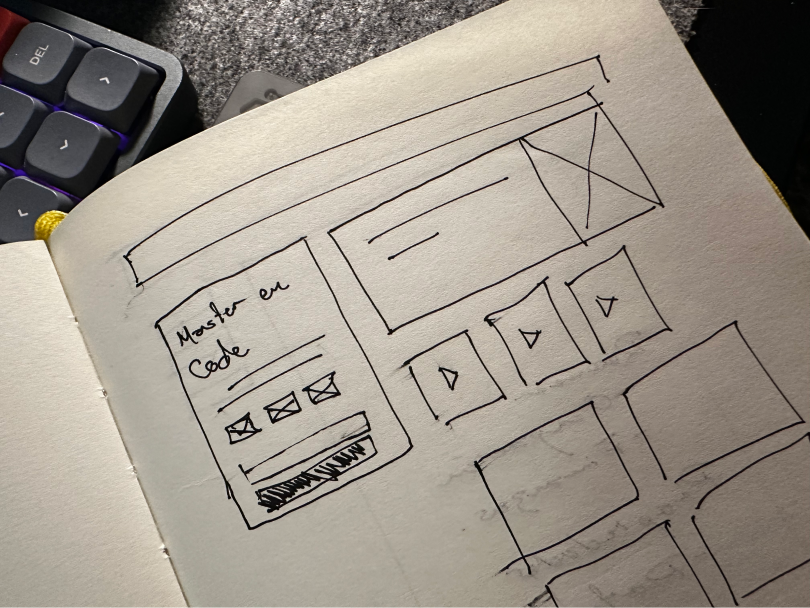 DEL
Master en
Code